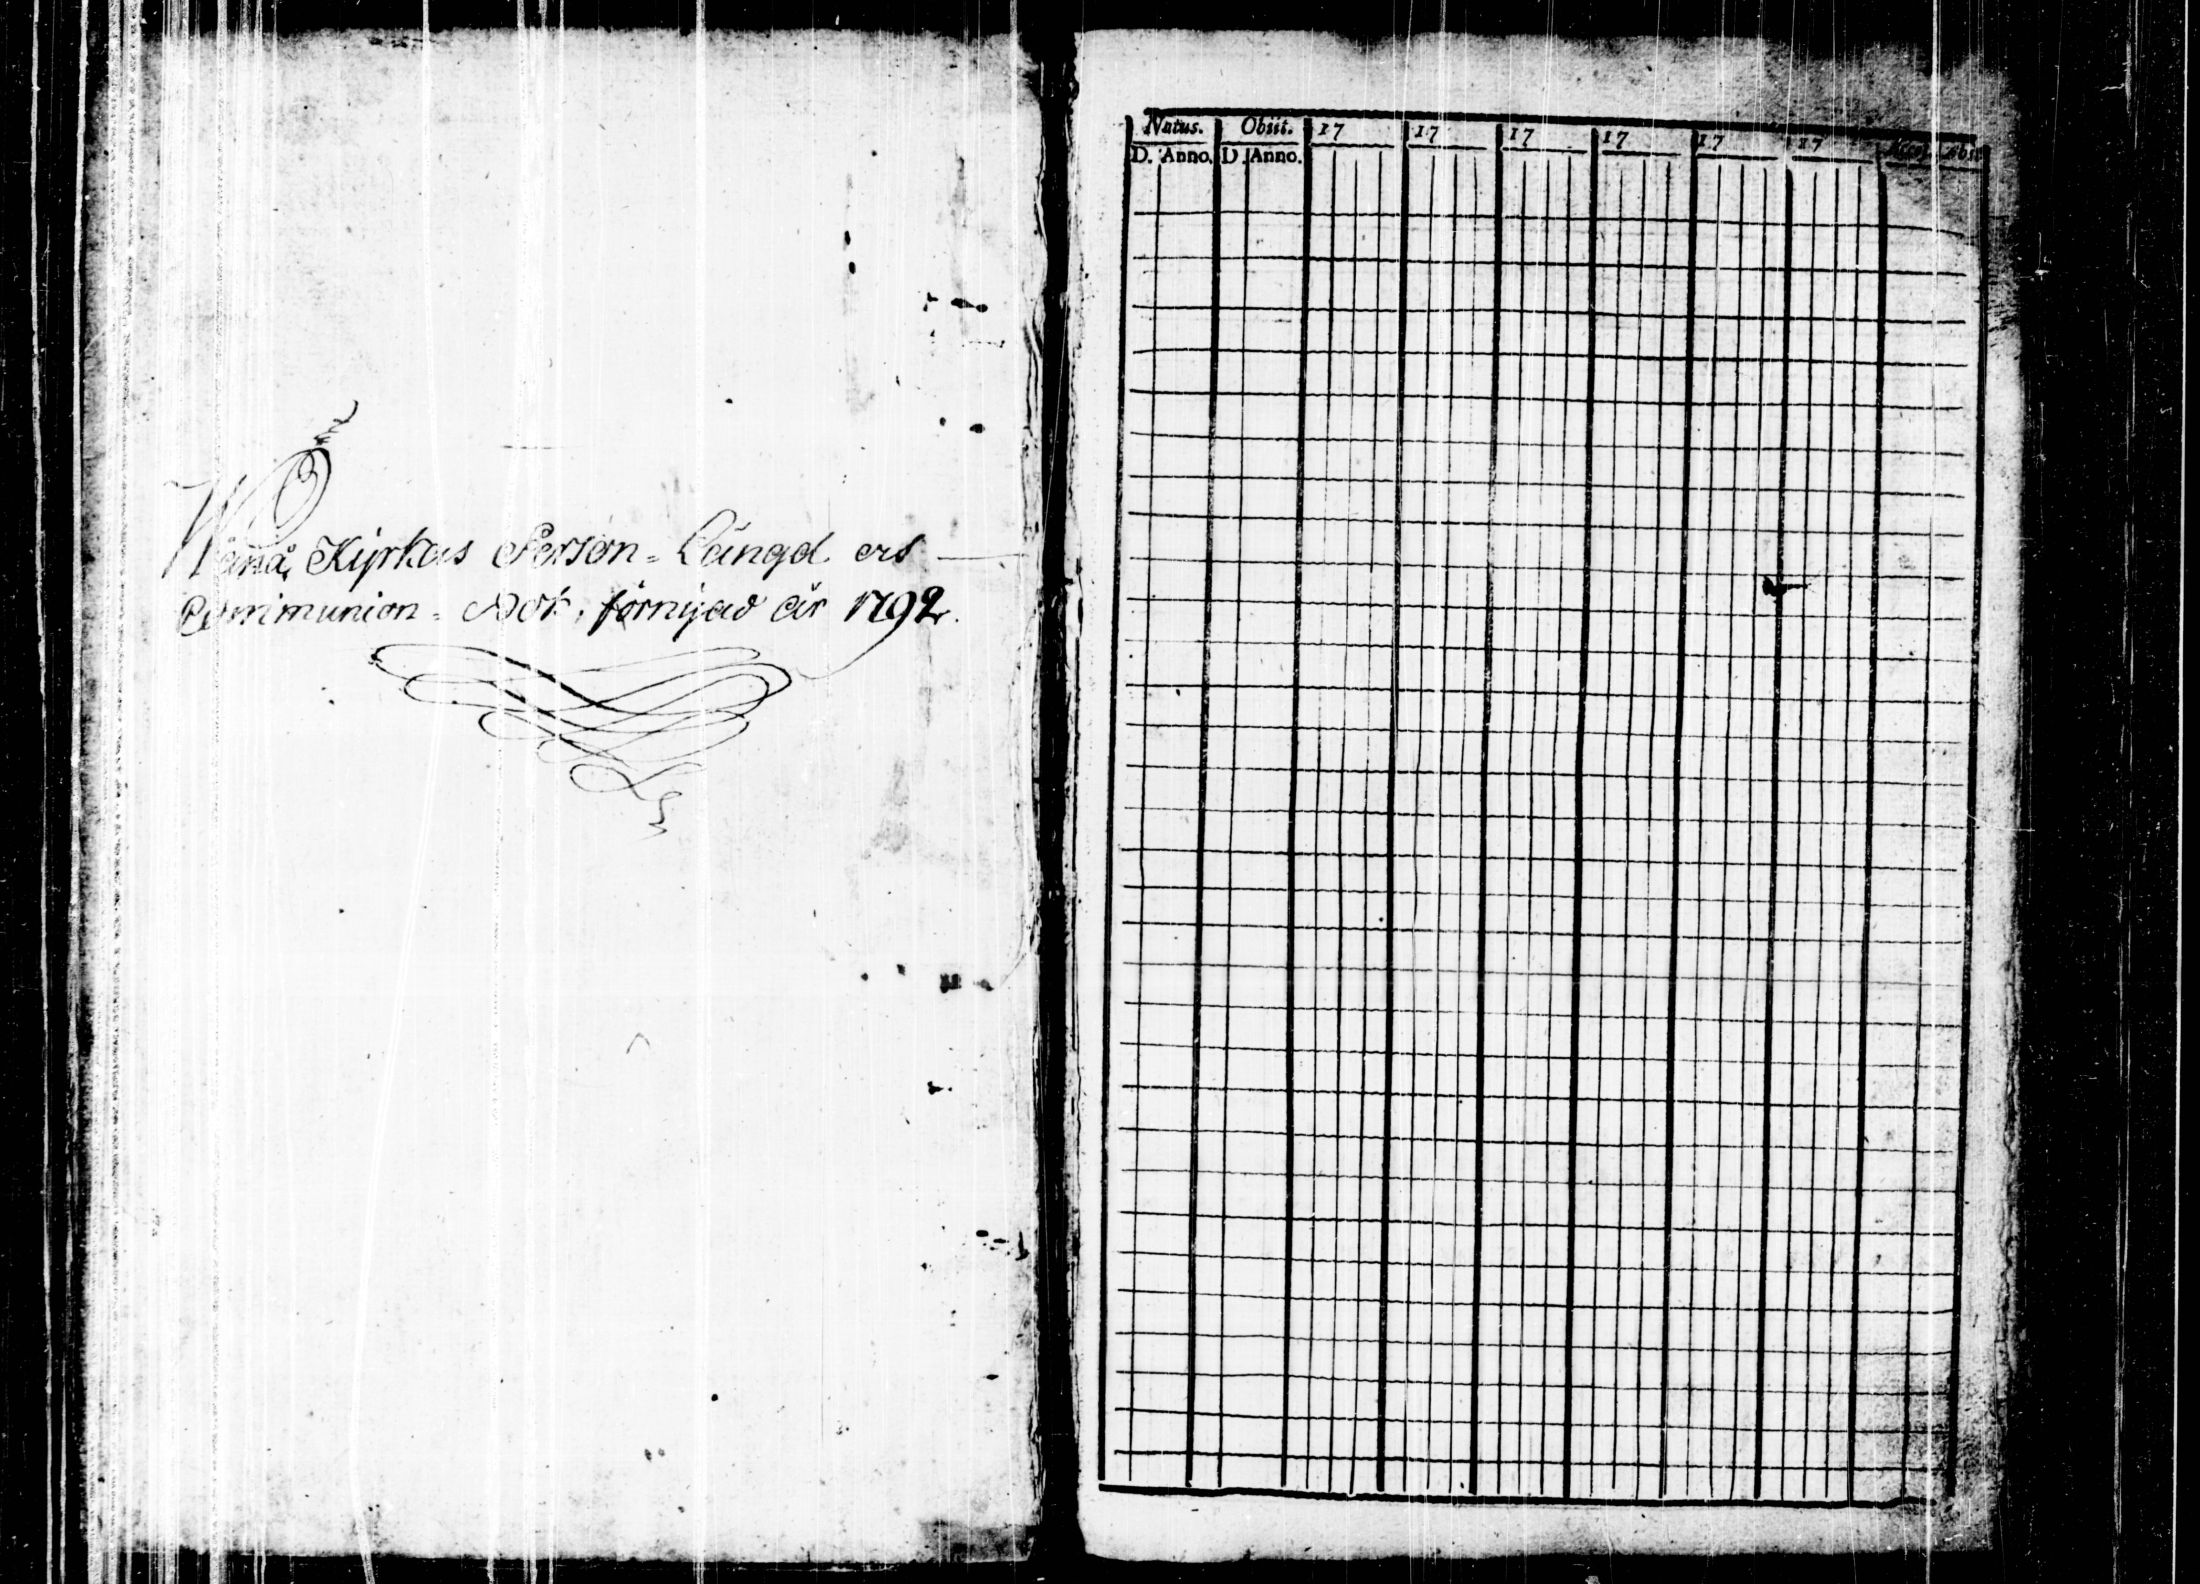 Wånå, Kyrkas Person-Längd och
Communion-Bok, förnyad år 1792.
Natus. Obiit. 17 17 17 17 17 17
D. Anno. D. Anno.